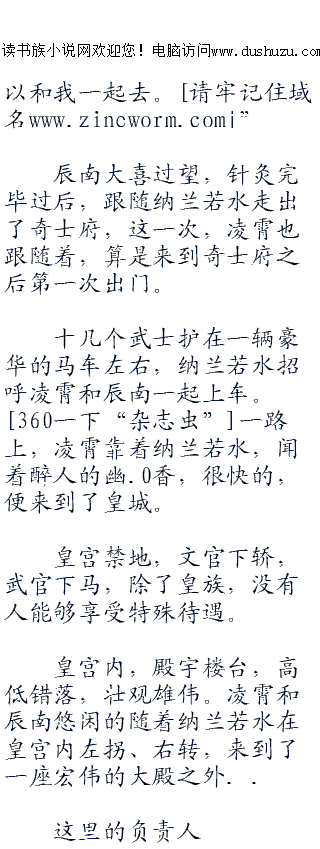 读书族小说网欢迎您！电脑访问www.dushuzu.com
以和我一起去。[请牢记住域
名www.zincworm.com|”
辰南大喜过望，针灸完
毕过后，跟随纳兰若水走出
了奇士府，这一次，凌霄也
跟随着，算是来到奇士府之
后第一次出门。
十几个武士护在一辆豪
华的马车左右，纳兰若水招
呼凌霄和辰南一起上车。
[360一下“杂志虫”]一路
上，凌霄靠着纳兰若水，闻
着醉人的幽.0香，很快的，
便来到了皇城。
皇宫禁地，文官下轿，
武官下马，除了皇族，没有
人能够享受特殊待遇。
皇宫内，殿宇楼台，高
低错落，壮观雄伟。凌霄和
辰南悠闲的随着纳兰若水在
皇宫内左拐、右转，来到了
一座宏伟的大殿之外..
这里的负责人